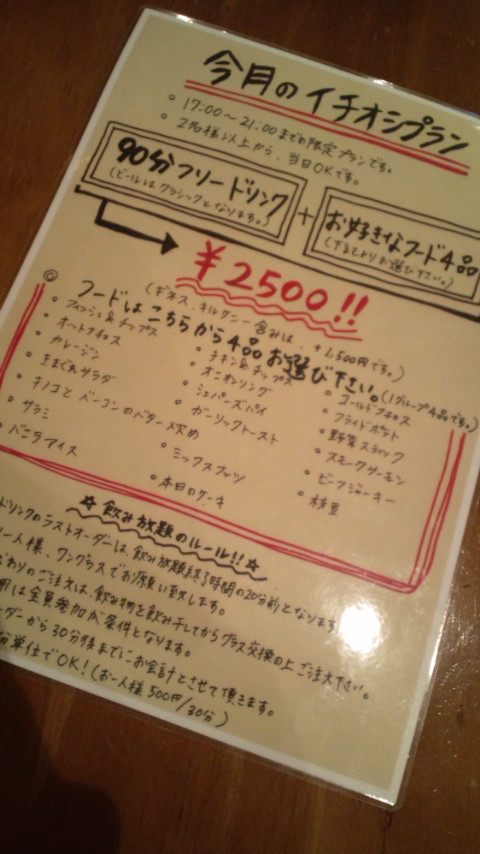 今月のイチオシプラン
• 17:00〜21:00までの限定プランです。
• 2名様以上から、当日OKです。
90分フリードリンク
(ビールはクラシックとなります。)
+
お好きなフード4品
(下記よりお選び下さい。)
¥2500!!
(ギネス、キルケニー含みは、+1,500円です。)
◎ フードはこちらから4品お選び下さい。(1グループ4品です。)
• フィッシュ&チップス
• ホットナチョス
• ガレージン
• きまぐれサラダ
• キノコとベーコンのバター炒め
• サラミ
• バニラアイス
• チキン&チップス
• オニオンリング
• シェパーズパイ
• ガーリックトースト
• ミックスナッツ
• 本日のケーキ
• ゴールドナチョス
• フライドポテト
• 野菜スティック
• スモークサーモン
• ビーフジャーキー
• 枝豆
☆飲み放題のルール!!☆
ドリンクのラストオーダーは、飲み放題終了時間の20分前となります
一人様、ワングラスでお願い致します。
わりのご注文は、飲み物を飲み干してからグラス交換の上ご注文下さい。
用は全員参加が条件となります。
ーダーから30分後までにお会計とさせて頂きます。
単位でOK!(お一人様500円/30分)